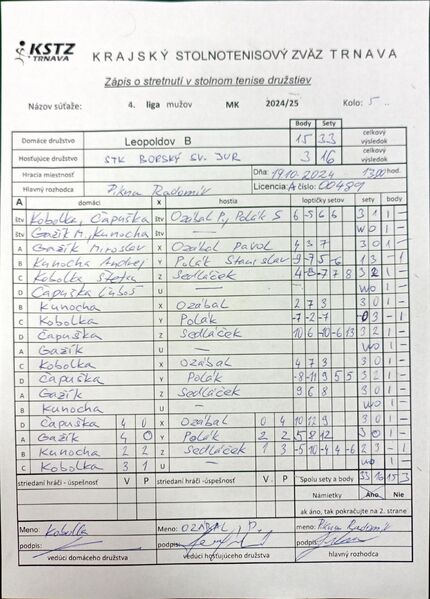 KSTZ
TRNAVA
KRAJSKÝ STOLNOTENISOVÝ ZVÄZ TRNAVA
Zápis o stretnutí v stolnom tenise družstiev
Názov súťaže: 4. liga mužov MK 2024/25 Kolo: 5
Body Sety
Domáce družstvo Leopoldov B 15 33 celkový výsledok
Hosťujúce družstvo STK BORSKÝ SV. JUR 3 16 celkový výsledok
Hracia miestnosť Dňa: 19.10.2024 13,00 hod.
Hlavný rozhodca Pikna Radomír Licencia: A číslo: 00489
A domáci X hostia loptičky setov sety body
štv Kobolka, Čapuška štv Ozábal P., Polák S 6 -5 6 6 3 1 1 -
štv Gažík M, Kunocha štv — WO 1 -
A Gažík Miroslav X Ozábal Pavol 4 3 7 3 0 1 -
B Kunocha Andrej Y Polák Stanislav 1 3 - 1
C Kobolka Z Sedláček 3 2 1 -
D Čapuška Ľuboš U — WO 1 -
B Kunocha X Ozábal 2 7 3 3 0 1 -
C Kobolka Y Polák -7 -2 -7 0 3 - 1
D Čapuška Z Sedláček 10 6 -10 -6 13 3 2 1 -
A Gažík U — WO 1 -
C Kobolka X Ozábal 4 7 3 3 0 1 -
D Čapuška Y Polák -8 -11 9 5 5 3 2 1 -
A Gažík Z Sedláček 9 6 8 3 0 1 -
B Kunocha U — WO 1 -
D Čapuška 4 0 X Ozábal 0 4 10 12 9 3 0 1 -
A Gažík 4 0 Y Polák 2 2 5 8 12 3 0 1 -
B Kunocha 2 2 Z Sedláček 1 3 -5 10 -4 4 -6 2 3 - 1
C Kobolka 3 1 U — WO 1 -
striedaní hráči - úspešnosť V P striedaní hráči - úspešnosť V P Spolu sety a body 33 16 15 3
Námietky Áno Nie
ak áno, tak pokračujte na 2. strane
Meno: Kobolka Meno: OZÁBAL P. meno: Pikna Radomír
podpis: podpis: podpis:
vedúci domáceho družstva vedúci hosťujúceho družstva hlavný rozhodca